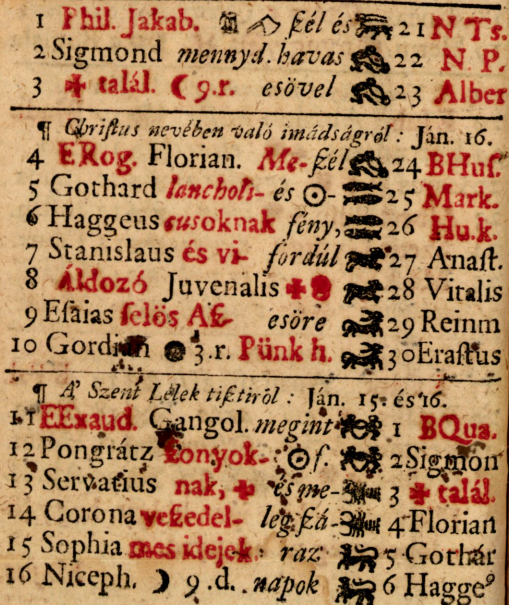 1 Phil. Jakab. ſzél és 21 N Ts.
2 Sigmond mennyd. havas 22 N P.
3 ✠ talál. ☾ 9.r. esővel 23 Alber
¶ Chriſtus nevében való imádságról: Ján. 16.
4 ERog. Florian. Me- ſzél 24 BHuſ.
5 Gothard lancholi- és ☉- 25 Mark.
6 Haggeus cusoknak fény, 26 Hu.k.
7 Stanislaus és vi- fordúl 27 Anaſt.
8 Áldozó Juvenalis ✠ 28 Vitalis
9 Eſaias ſelös Aſz- esöre 29 Reinm
10 Gordian ● 3.r. Pünk h. 30 Eraſtus
¶ A' Szent Lélek tiſztiröl: Ján. 15. és 16.
11 EExaud. Gangol. megint 1 BQua.
12 Pongrátz ſzonyok- ☉ f. 2 Sigmon
13 Servatius nak, ✠ és me- 3 ✠ talál.
14 Corona veſzedel- leg. ſzá- 4 Florian
15 Sophia mes idejek. raz 5 Gothar
16 Niceph. ☽ 9.d. napok 6 Hagge⁹